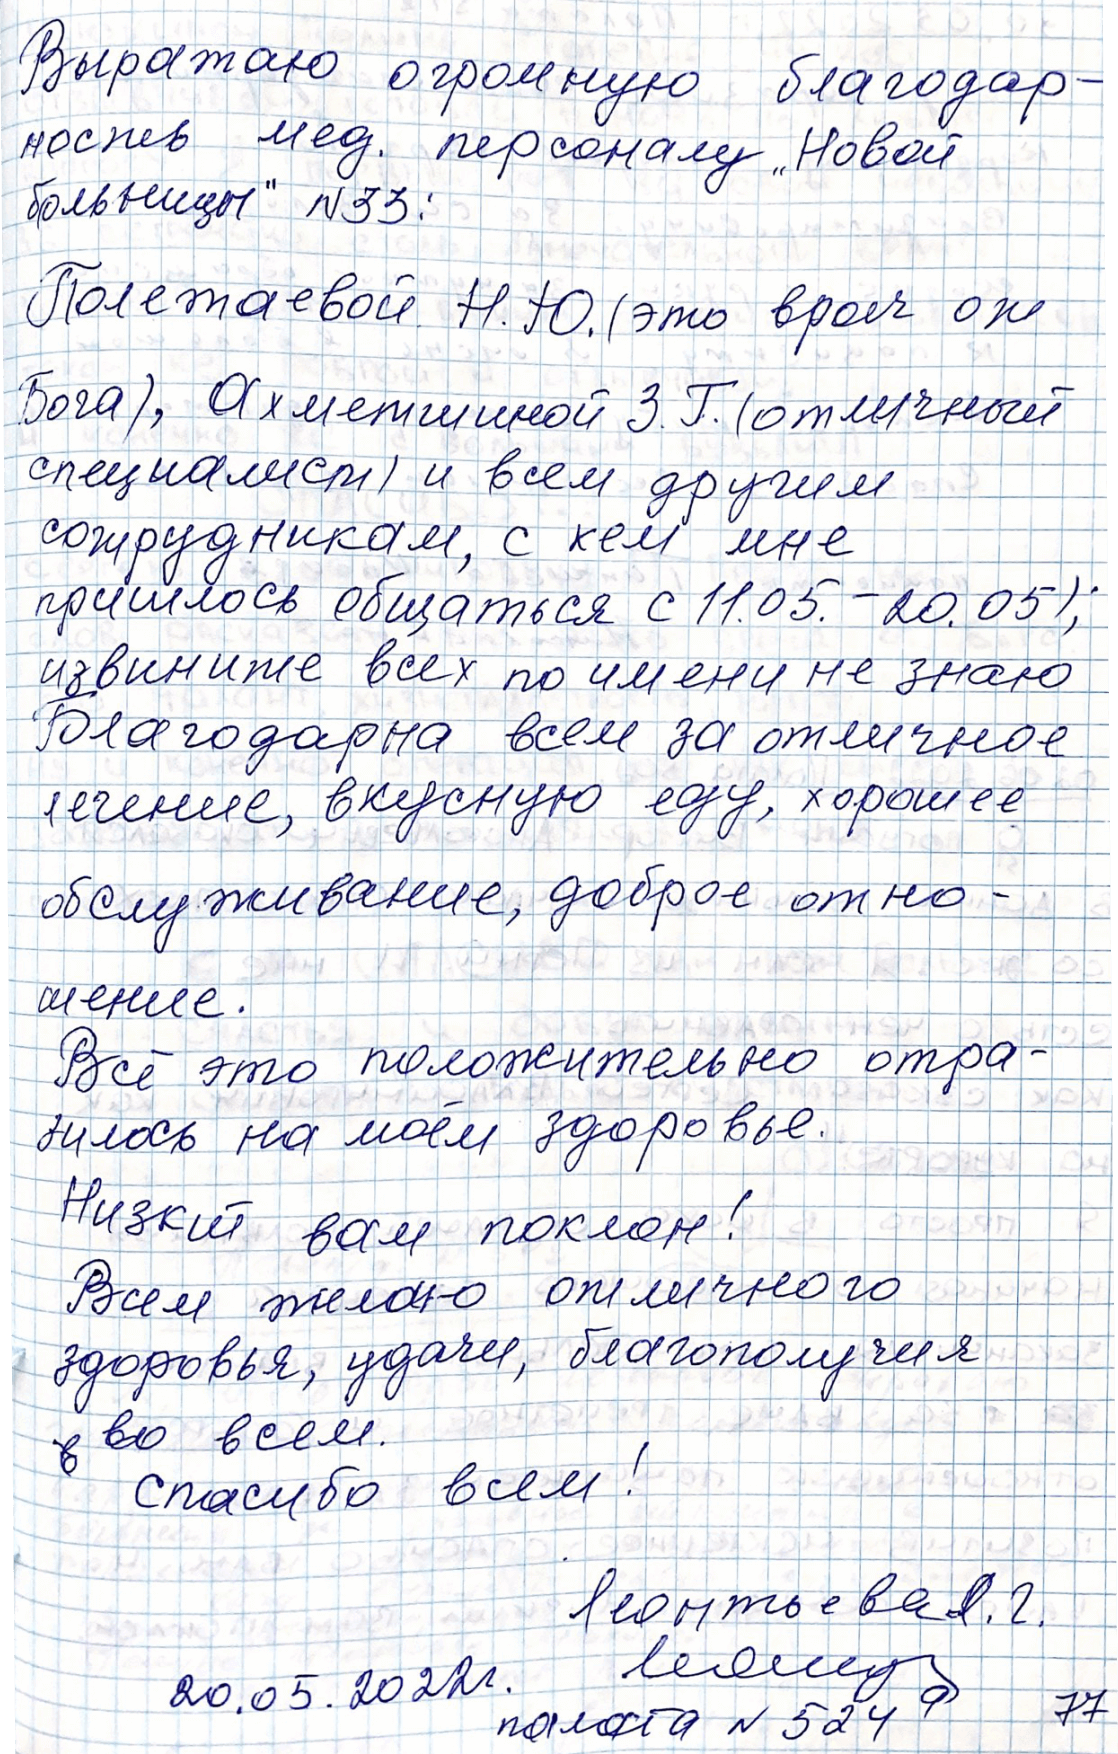 Выражаю огромную благодар-
ность мед. персоналу „Новой
больницы" N33:
Полежаевой Н.Ю. (это врач от
Бога), Ахметшиной З.Г. (отличный
специалист) и всем другим
сотрудникам, с кем мне
пришлось общаться с 11.05. - 20.05);
извините всех по имени не знаю
Благодарна всем за отличное
лечение, вкусную еду, хорошее
обслуживание, доброе отно-
шение.
Всё это положительно отра-
зилось на моём здоровье.
Низкий вам поклон!
Всем желаю отличного
здоровья, удачи, благополучия
в во всем.
Спасибо всем!
Леонтьева Л.Г.
20.05.2022г.
палата N 524
77